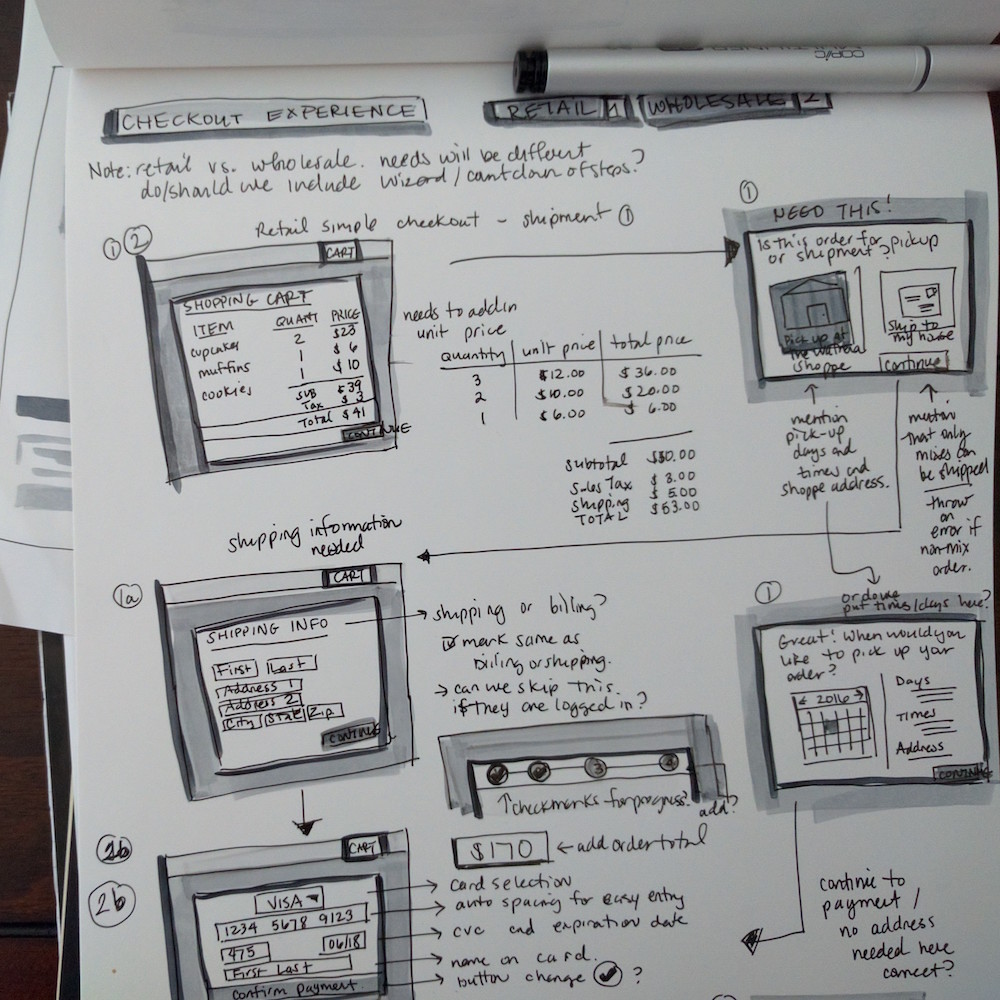 COPIC
CHECKOUT EXPERIENCE
RETAIL 1
WHOLESALE 2
Note: retail vs. wholesale. needs will be different
do/should we include wizard/countdown of steps?
Retail simple checkout - shipment ①
① ②
CART
SHOPPING CART
ITEM QUANT PRICE
cupcakes 2 $23
muffins 1 $6
cookies 1 $10
SUB $39
Tax $3
Total $41
CONTINUE
needs to add in
unit price
quantity unit price total price
3 $12.00 $36.00
2 $10.00 $20.00
1 $6.00 $6.00
subtotal $50.00
Sales Tax $3.00
Shipping $5.00
TOTAL $53.00
①
NEED THIS!
Is this order for pickup
or shipment?
Pick up at
the
shoppe
Ship to
my house
Continue
mention
pick-up
days and
times and
shoppe address.
mention
that only
mixes can
be shipped
throw
an
error if
non-mix
order.
shipping information
needed
1a
CART
SHIPPING INFO
First Last
Address 1
Address 2
City State Zip
CONTINUE
shipping or billing?
mark same as
billing or shipping.
can we skip this
if they are logged in?
3 4
checkmarks for progress?
add?
①
or do we
put times/days here?
Great! When would you
like to pick up your
order?
2016
Days
Times
Address
CONTINUE
2b
2b
CART
VISA
1234 5678 9123
475 06/18
First Last
Confirm payment
$170
add order total
card selection
auto spacing for easy entry
cvc and expiration date
name on card.
button change ?
continue to
payment /
no address
needed here
correct?